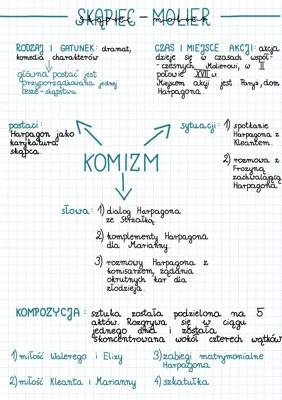 SKĄPIEC - MOLIER
RODZAJ I GATUNEK: dramat,
komedia charakterów
główna postać jest
przyporządkowana jednej
cesze - skąpstwu
CZAS I MIEJSCE AKCJI: akcja
dzieje się w czasach współ-
czesnych Molierowi, w II
połowie XVII w.
Miejscem akcji jest Paryż, dom
Harpagona.
postaci:
Harpagon jako
karykatura
skąpca
KOMIZM
sytuacji: 1) spotkanie
Harpagona z
Kleantem.
2) rozmowa z
Frozyną
zachwalającą
Harpagona
słowa: 1) dialog Harpagona
ze Strzałką,
2) komplementy Harpagona
dla Marianny
3) rozmowy Harpagona z
komisarzem, żądania
okrutnych kar dla
złodzieja.
KOMPOZYCJA: sztuka została podzielona na 5
aktów. Rozgrywa się w ciągu
jednego dnia i została
skoncentrowana wokół czterech wątków
1) miłość Walerego i Elizy
2) miłość Kleanta i Marianny
3) zabiegi matrymonialne
Harpagona
4) szkatułka